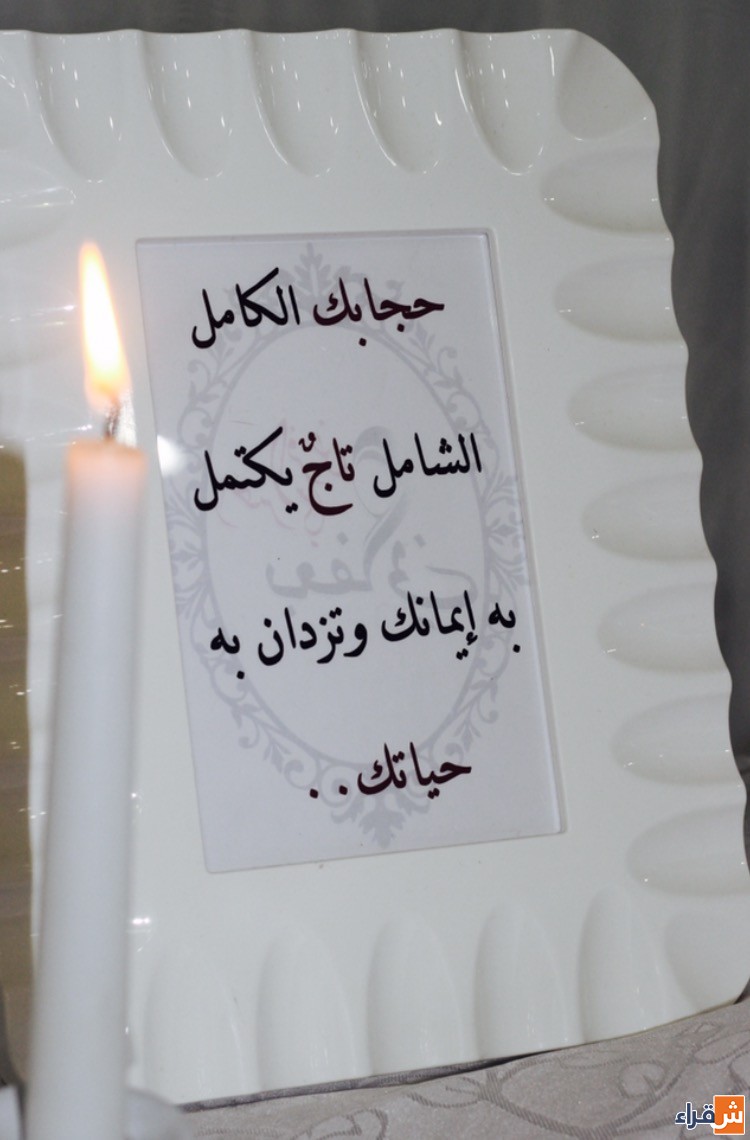 حجابك الكامل
الشامل تاجٌ يكتمل
به إيمانك وتزدان به
حياتك..
شقراء